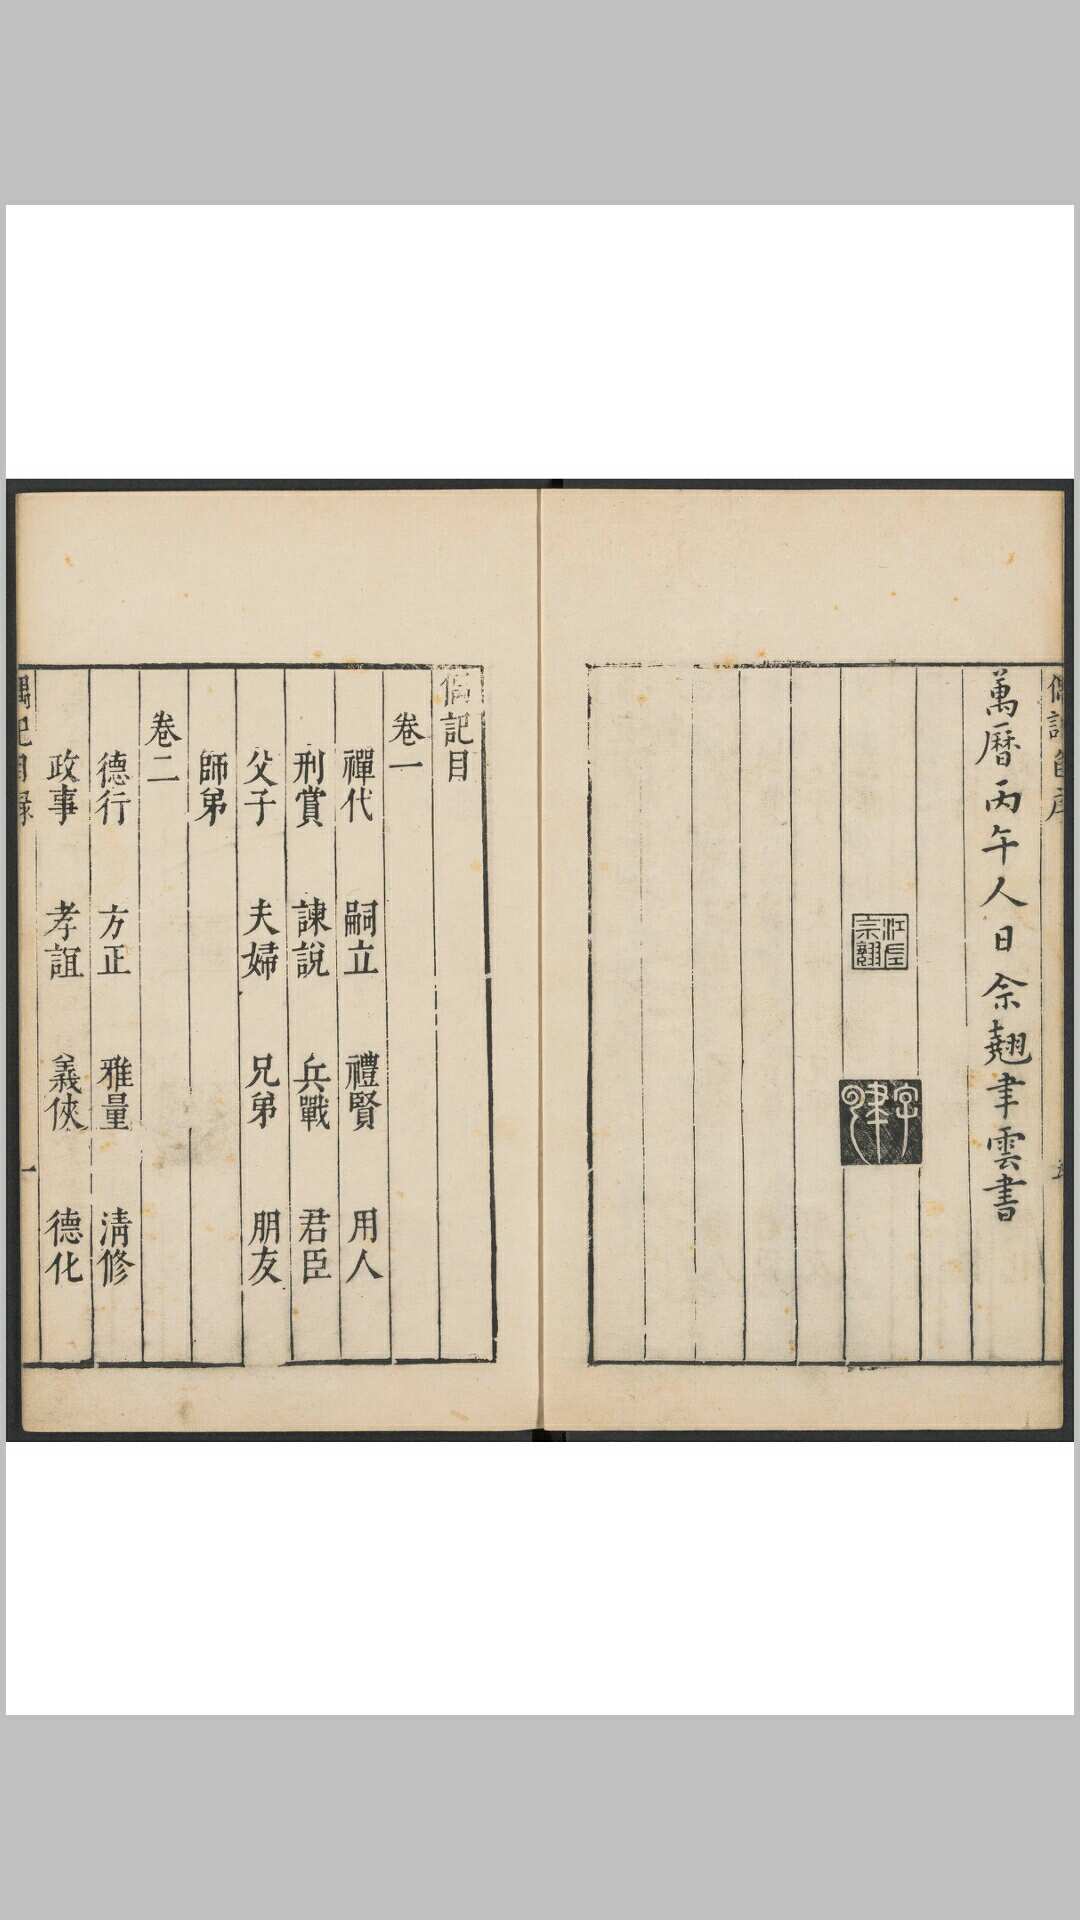 萬曆丙午人日佘翹聿雲書
江左佘翹
字聿
偶記目
卷一
禪代 嗣立 禮賢 用人
刑賞 諫說 兵戰 君臣
父子 夫婦 兄弟 朋友
師弟
卷二
德行 方正 雅量 清修
政事 孝誼 義俠 德化
偶記目錄 一